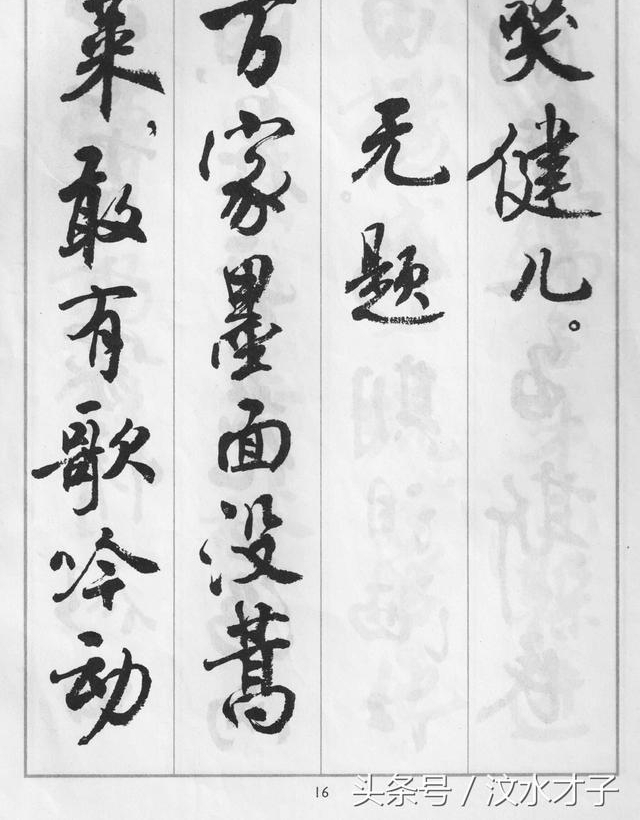 哭健儿。
无题
万家墨面没蒿
莱，敢有歌吟动
16
头条号 / 汶水才子